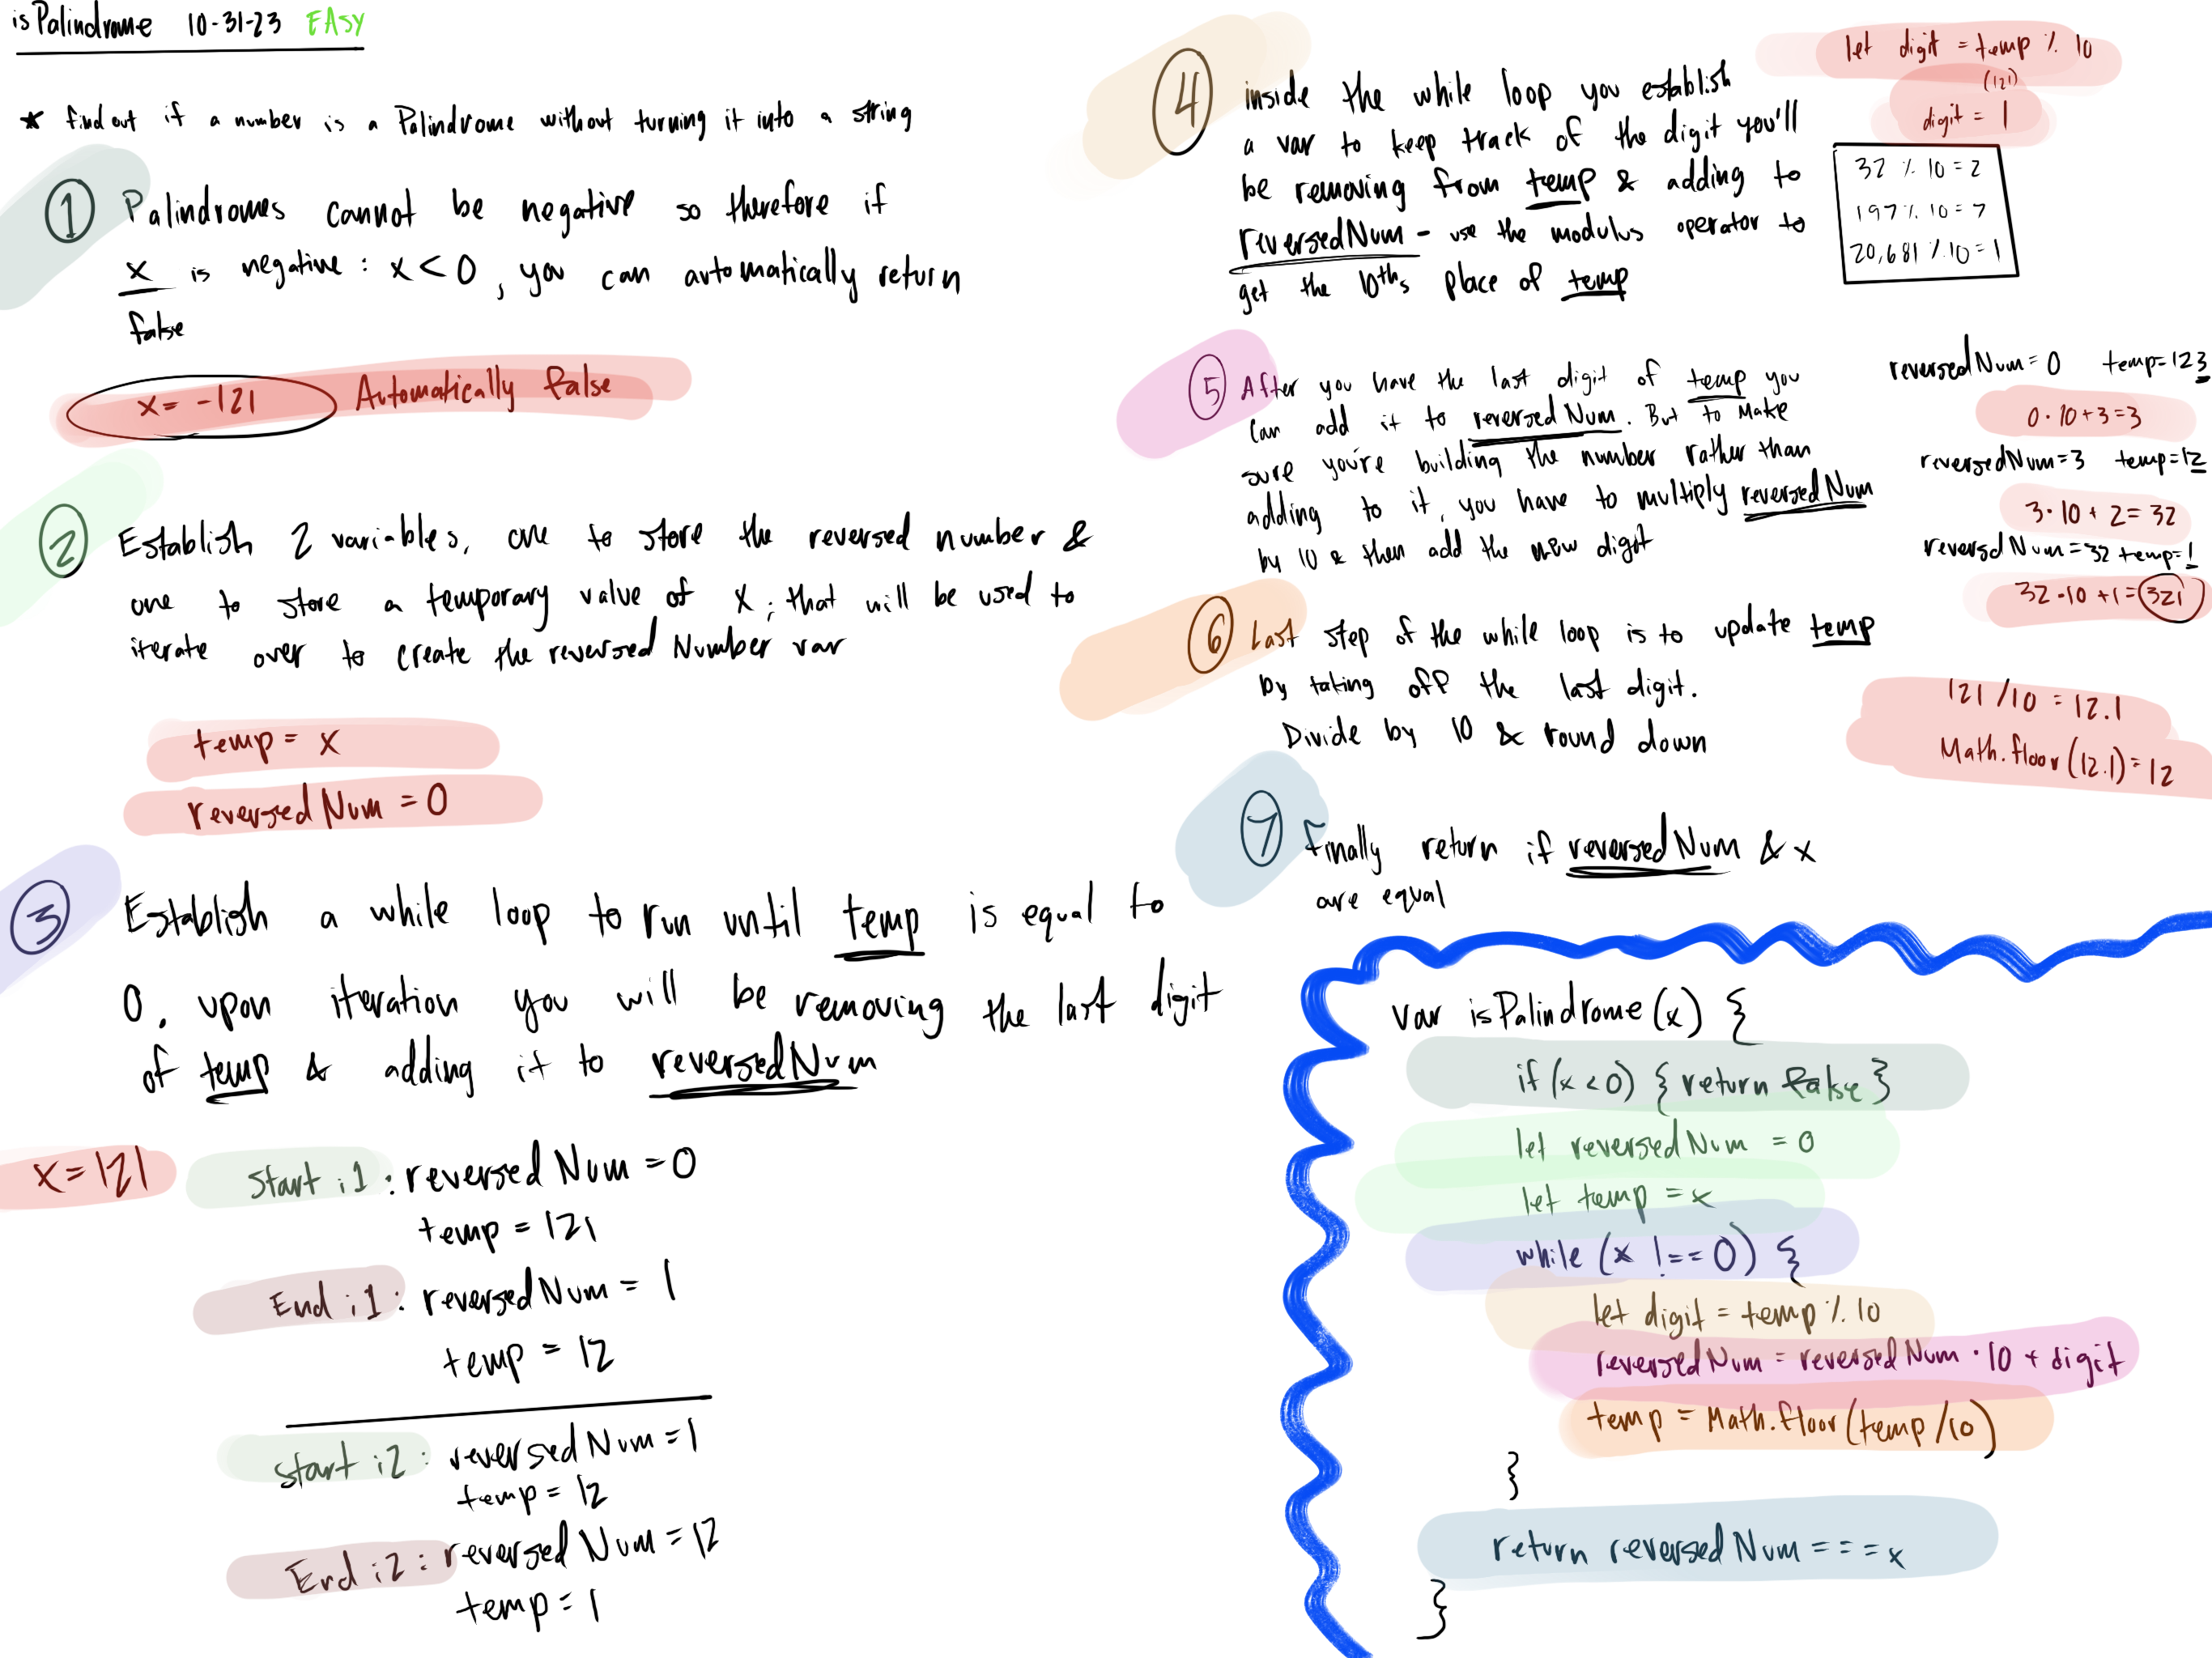 isPalindrome 10-31-23 EASY
* find out if a number is a Palindrome without turning it into a string
1 Palindromes cannot be negative so therefore if
x is negative: x < 0, you can automatically return
false
x = -121 Automatically false
2 Establish 2 variables, one to store the reversed number &
one to store a temporary value of x; that will be used to
iterate over to create the reversed Number var
temp = x
reversedNum = 0
3 Establish a while loop to run until temp is equal to
0, upon iteration you will be removing the last digit
of temp & adding it to reversedNum
x = 121
Start i1: reversedNum = 0
temp = 121
End i1: reversedNum = 1
temp = 12
Start i2: reversedNum = 1
temp = 12
End i2: reversedNum = 12
temp = 1
4 inside the while loop you establish
a var to keep track of the digit you'll
be removing from temp & adding to
reversedNum - use the modulus operator to
get the 10ths place of temp
let digit = temp % 10
(121)
digit = 1
32 % 10 = 2
197 % 10 = 7
20,681 % 10 = 1
5 After you have the last digit of temp you
can add it to reversedNum. But to make
sure you're building the number rather than
adding to it, you have to multiply reversedNum
by 10 & then add the new digit
reversedNum = 0 temp = 123
0 · 10 + 3 = 3
reversedNum = 3 temp = 12
3 · 10 + 2 = 32
reversdNum = 32 temp = 1
32 · 10 + 1 = 321
6 Last step of the while loop is to update temp
by taking off the last digit.
Divide by 10 & round down
121 / 10 = 12.1
Math.floor(12.1) = 12
7 Finally return if reversedNum & x
are equal
var isPalindrome (x) {
if (x < 0) { return false }
let reversedNum = 0
let temp = x
while (x !== 0) {
let digit = temp % 10
reversedNum = reversedNum · 10 + digit
temp = Math.floor(temp/10)
}
return reversedNum === x
}